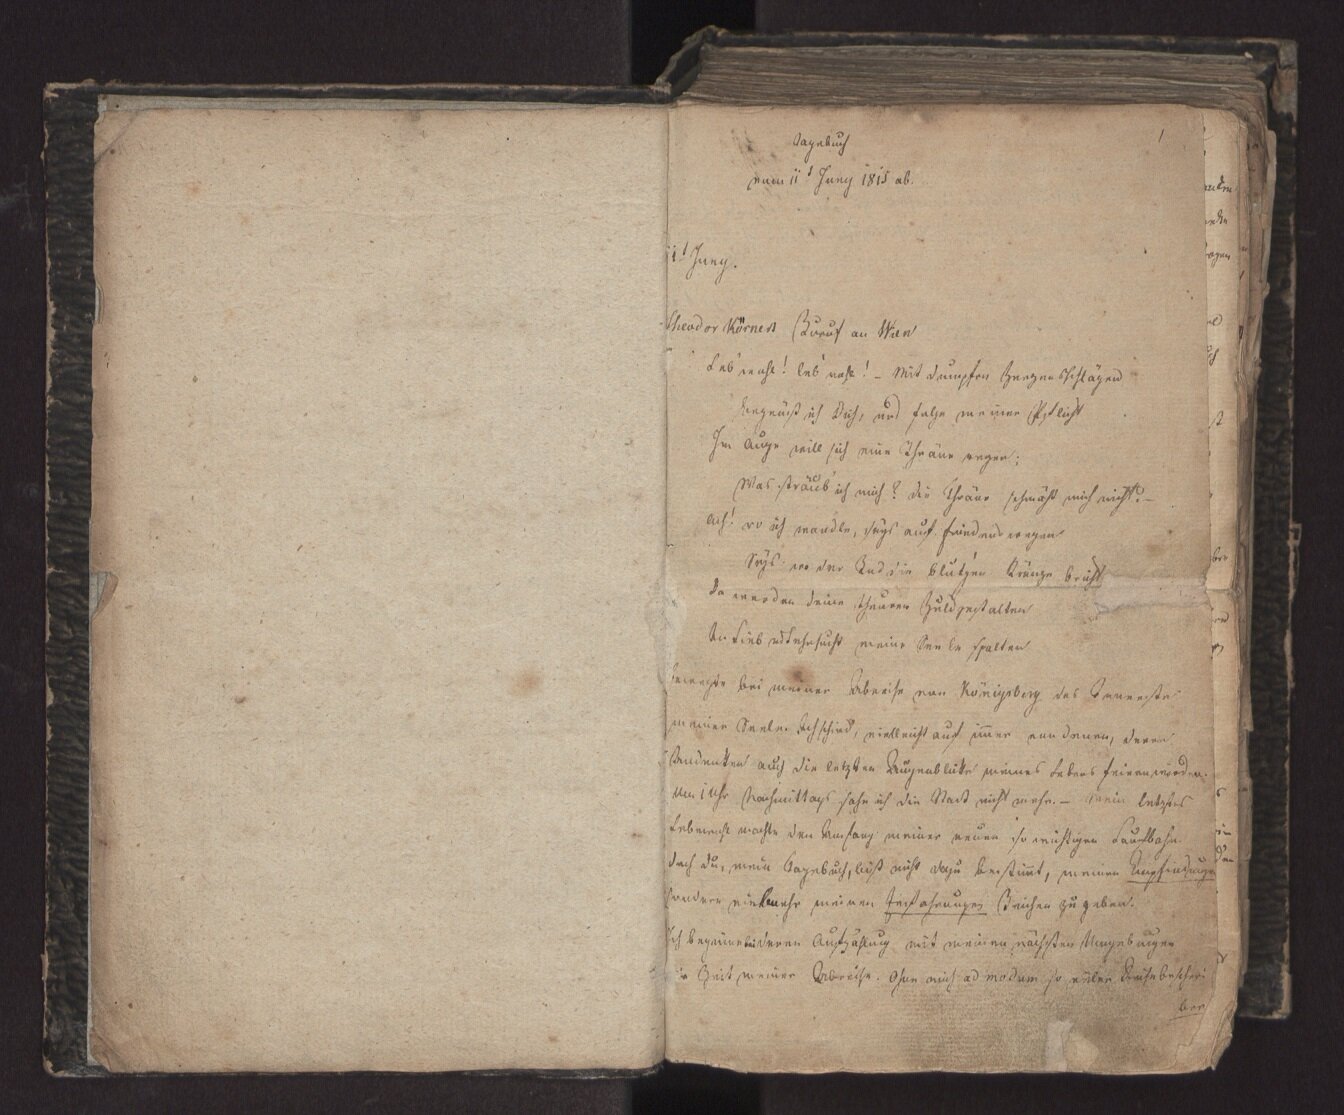 Tagebuch
vom 11t Juny 1815 ab.
1
11t Juny.
Theodor Körners Zuruf an Wien
Leb' wohl! leb' wohl! – Mit dumpfen Herzensschlägen
Begrüß ich Dich, und folge meiner Pflicht
Im Auge will sich eine Thräne regen;
Was sträub' ich mich? die Thräne schmäht mich nicht. –
Ach! wo ich wandle, seys auf Friedenswegen
Seys wo der Tod die blutgen Kränze bricht
Da werden deine theuren Huldgestalten
In Lieb und Sehnsucht meine Seele spalten
bewegte bei meiner Abreise von Königsberg das Innerste
meiner Seele. Ich schied, vielleicht auf immer von denen, deren
Andenken auch die letzten Augenblicke meines Lebens feiern werden.
Um 1 Uhr Nachmittags sahe ich die Stadt nicht mehr. – mein letztes
Lebewohl machte den Anfang meiner neuen so wichtigen Laufbahn
doch du, mein Tagebuch, bist nicht dazu bestimmt, meinen Empfindungen
sondern vielmehr meinen Erfahrungen Zeichen zu geben.
Ich beginne bei deren Aufzählung mit meinen nächsten Umgebungen
zur Zeit meiner Abreise. Ohne mich ad modum so vieler Reisebeschrei
ber